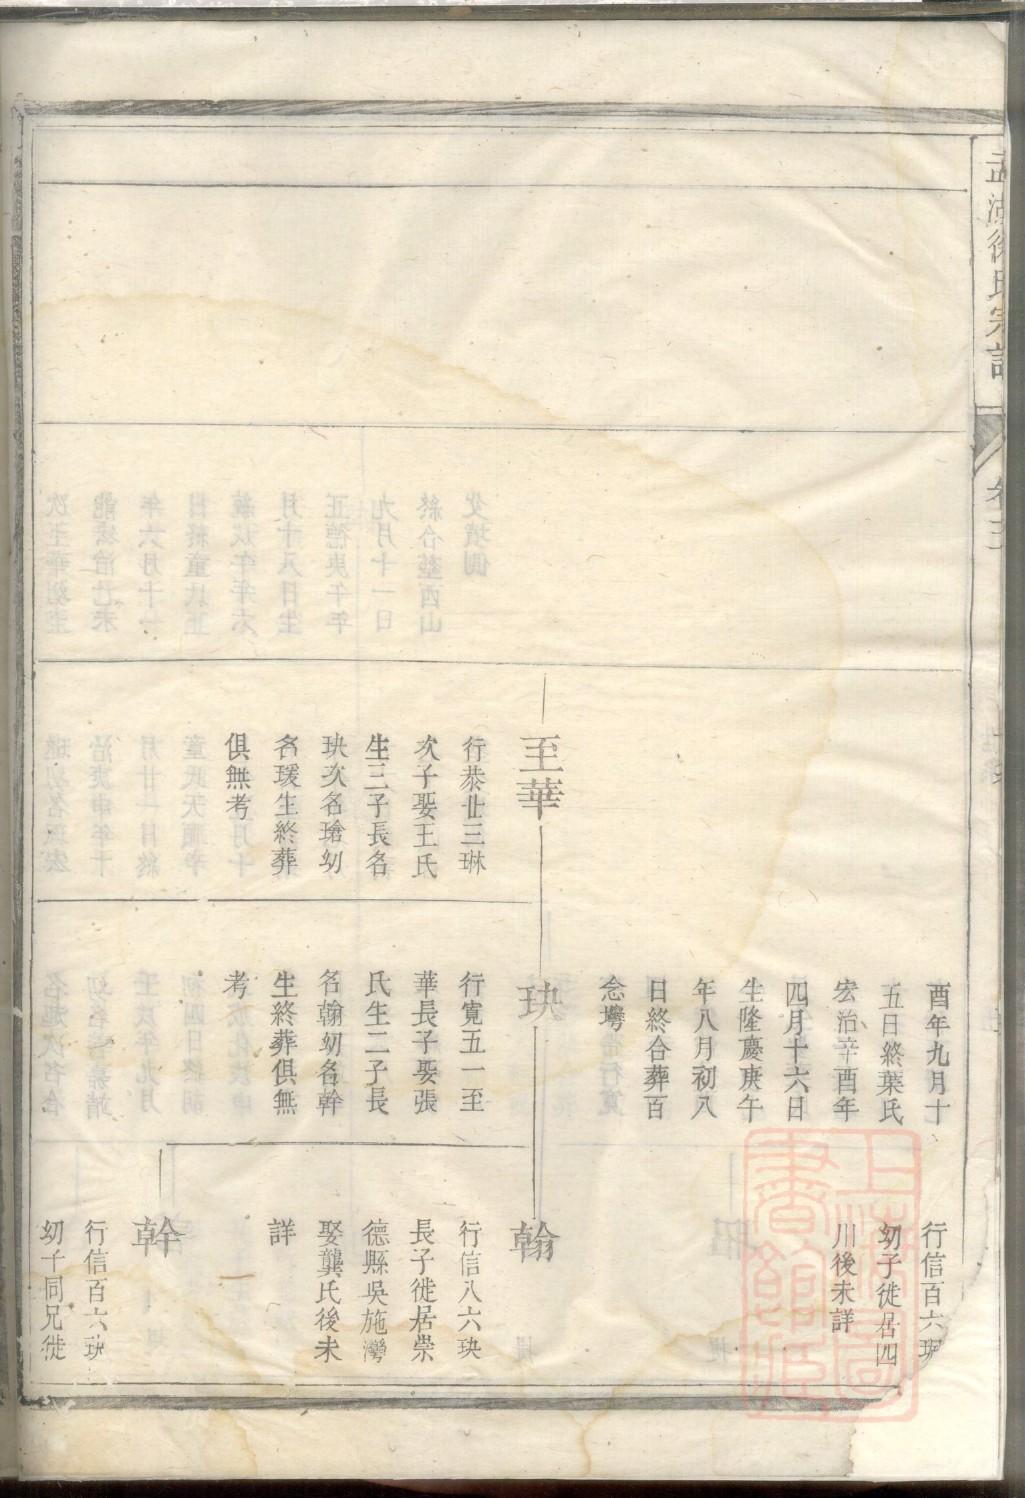 孟湖徐氏宗譜
卷三
至華
行恭廿三琳
次子娶王氏
生三子長名
玦次名瑲幼
名瑗生終葬
俱無考
酉年九月十
五日終葉氏
宏治辛酉年
四月十六日
生隆慶庚午
年八月初八
日終合葬百
念塆
玦
行寬五一至
華長子娶張
氏生二子長
名翰幼名幹
生終葬俱無
考
行信百六
幼子徙居四
川後未詳
翰
行信八六玦
長子徙居崇
德縣吳施灣
娶龔氏後未
詳
幹
行信百六玦
幼子同兄徙
上海圖書館藏